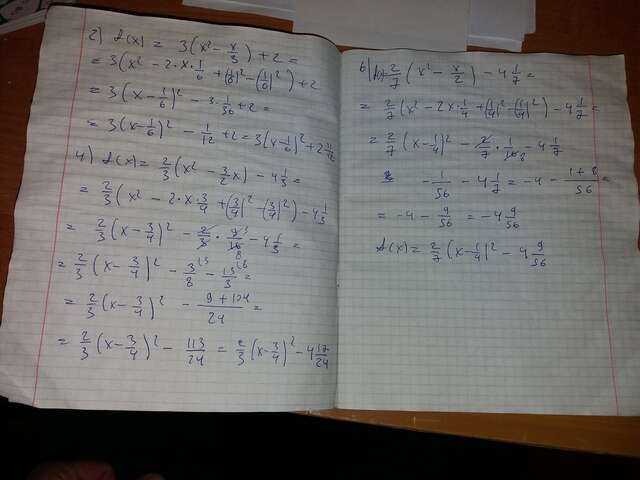 2) f(x) = 3(x² - x/3) + 2 =
= 3(x² - 2·x·1/6 + (1/6)² - (1/6)²) + 2
= 3(x - 1/6)² - 3 1/36 + 2 =
= 3(x - 1/6)² - 1/12 + 2 = 3(x - 1/6)² + 2 11/12
4) f(x) = 2/3(x² - 3/2x) - 4 1/3 =
= 2/3(x² - 2·x·3/4 + (3/4)² - (3/4)²) - 4 1/3
= 2/3(x - 3/4)² - 2/3 · 9/16 - 4 1/3 =
= 2/3(x - 3/4)² - 3/8 - 13/3 =
= 2/3(x - 3/4)² - 9+104/24 =
= 2/3(x - 3/4)² - 113/24 = 2/3(x - 3/4)² - 4 17/24
6) 2/7(x² - x/2) - 4 1/7 =
= 2/7(x² - 2·x·1/4 + (1/4)² - (1/4)²) - 4 1/7 =
= 2/7(x - 1/4)² - 2/7 · 1/16 - 4 1/7
- 1/56 - 4 1/7 = -4 - 1+8/56 =
= -4 - 9/56 = -4 9/56
f(x) = 2/7(x - 1/4)² - 4 9/56